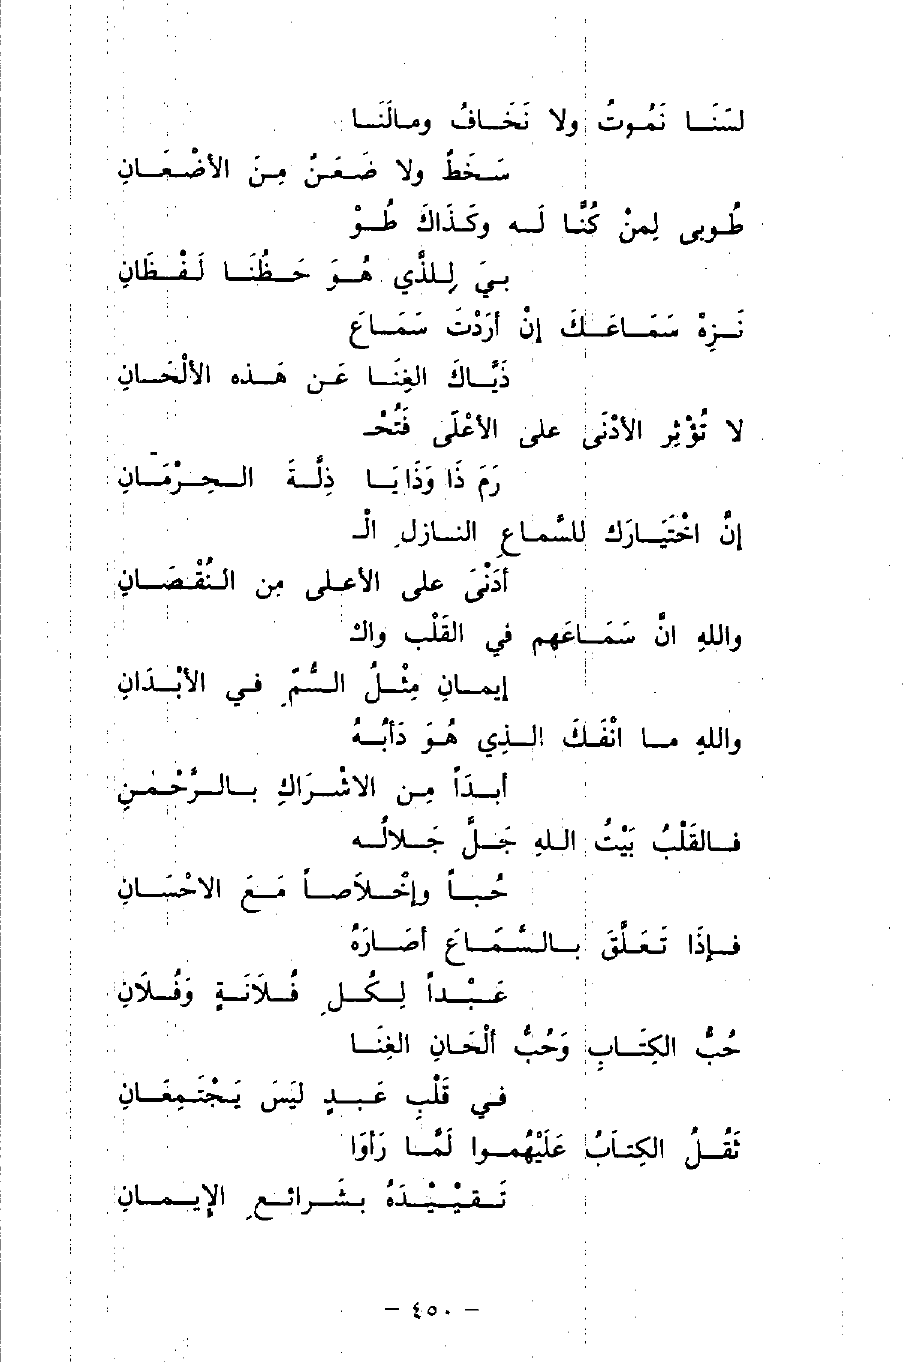 لسْنَا نَمُوتُ ولا نَخَافُ ومالَنَا
سَخَطٌ ولا ضَغَنٌ مِنَ الأضْغَانِ
طُوبى لِمنْ كُنَّا لَه وكَذَاكَ طُوْ
بيَ لِلذَّي هُوَ حَظُنَا لَفْظَانِ
نَزِهْ سَمَاعَكَ إنْ أرَدْتَ سَمَاعَ
ذَيَّاكَ الغِنَا عَن هَذه الألْحَانِ
لا تُؤْثِر الأدْنَى على الأعْلَى فَتُحْـ
رَمَ ذَا وَذَا يَا ذِلَّةَ الحِرْمَانِ
إنَّ اخْتَيَارَك للسَّماعِ النازلِ الْـ
أدْنَى على الأعلى مِن النُقْصَانِ
واللهِ انَّ سَمَاعَهم في القَلْبِ واك
إيمانِ مِثْلُ السُّمِّ في الأبْدَانِ
واللهِ ما انْفَكَ الذِي هُوَ دَأبُهُ
أبَدَاً مِن الاشْرَاكِ بالرَّحْمَنِ
فالقَلْبُ بَيْتُ اللهِ جَلَّ جَلالُه
حُبَاً وإخْلاَصاً مَعَ الاحْسَانِ
فإذَا تَعَلَّقَ بالسَّمَاعَ أصَارَهُ
عَبْداً لِكُلِ فُلاَنَةٍ وَفُلاَنِ
حُبُّ الكِتَابِ وَحُبُّ ألْحَانِ الغِنَا
في قَلْبِ عَبدٍ ليَسَ يَجْتَمِعَانِ
ثَقُلُ الكِتاَبُ عَلَيْهُموا لَمَّا رَأوَا
تَقيْيْدَهُ بشَرائعِ الإيمانِ
– ٤٥٠ –